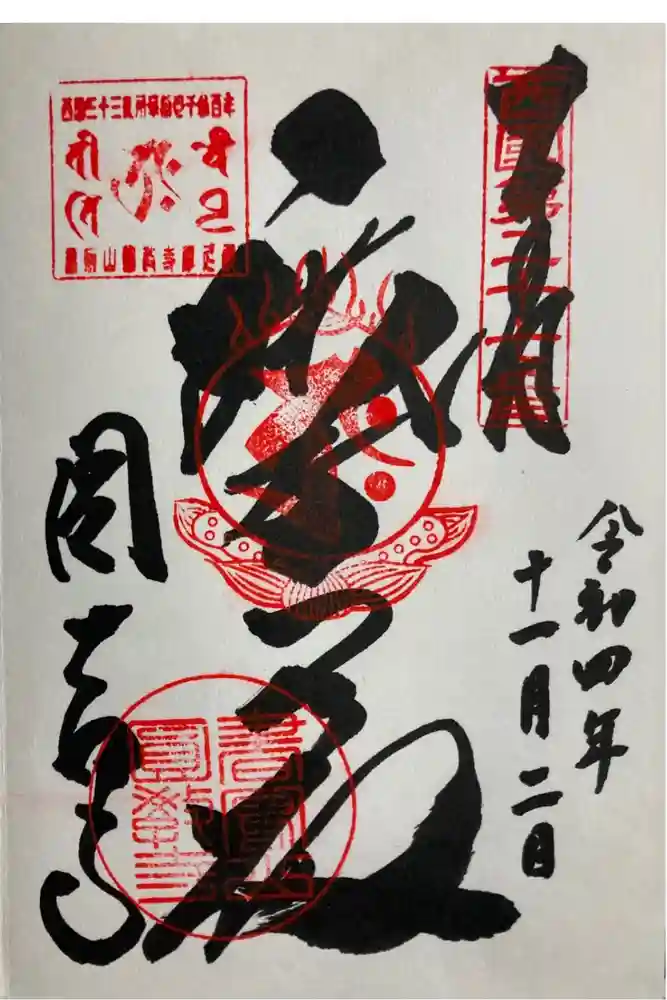 奉拝
西國第二十七番
令和四年
十一月二日
摩尼殿
圓教寺
書寫山
圓教寺